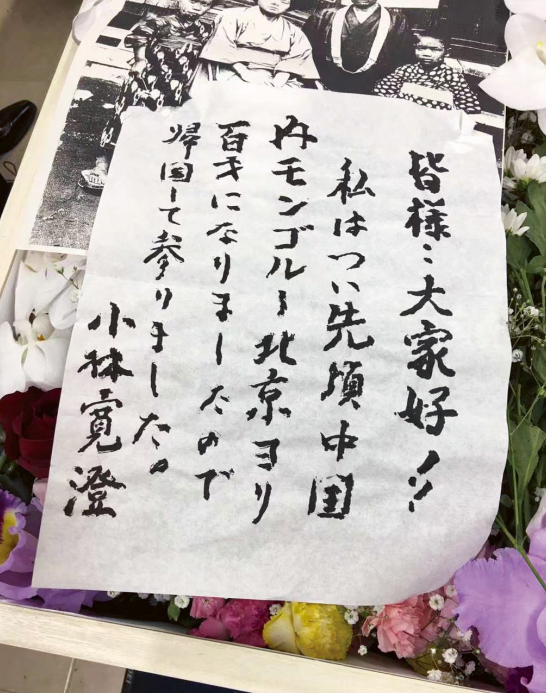 皆様:大家好!!
私はつい先頃中国
内モンゴル・北京ヨリ
百才になりましたので
帰国して参りました。
小林寛澄